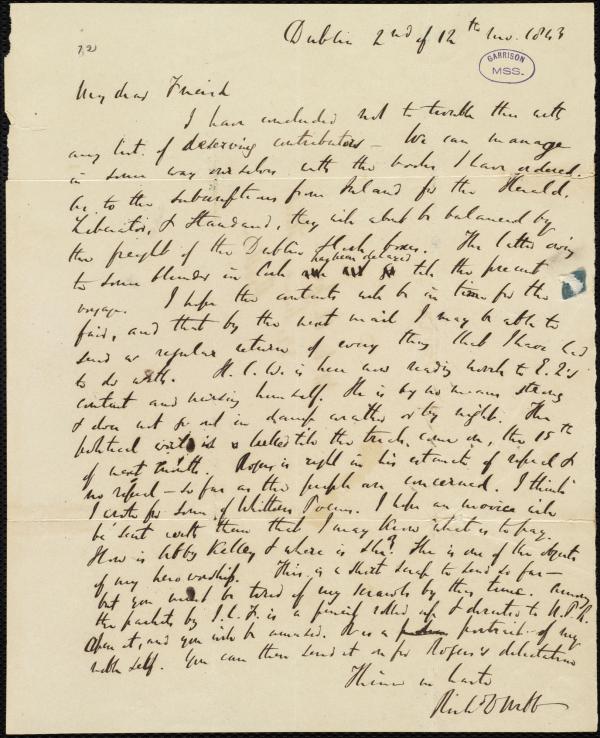 Dublin 2nd of 12th mo. 1843
GARRISON
MSS.
My dear Friend
I have concluded not to trouble thee with
any list of deserving contributors - We can manage
in some way ourselves with the books I have ordered.
As to the subscriptions from Ireland for the Herald,
Liberator, & Standard, they will about be balanced by
the freight of the Dublin & Cork boxes. The latter owing
to some blunder in Cork has been delayed till the present
voyage. I hope the contents will be in time for the
fair, and that by the next mail I may be able to
send a regular return of every thing that I have had
to do with. H. C. W. is here now reading novels to E. P.'s
content and nursing himself. He is by no means strong
& does not go out in damp weather or by night. The
political world is till the trials come on, the 15th
of next month. Rogers is right in his estimate of repeal &
no repeal - so far as the people are concerned. I think
I wrote for some of Whittier's Poems. I hope an invoice will
be sent with them that I may know what is to pay.
How is Abby Kelley & where is she? She is one of the objects
of my heroworship. This is a short scrap to send so far -
but you must be tired of my scrawls by this time. Among
the packets by is a pencil rolled up & directed to N. P. R.
Open it, and you will be amused. It is a portrait of my
noble self. You can then send it on for Rogers's delectation
Thine in haste
Richd D Webb